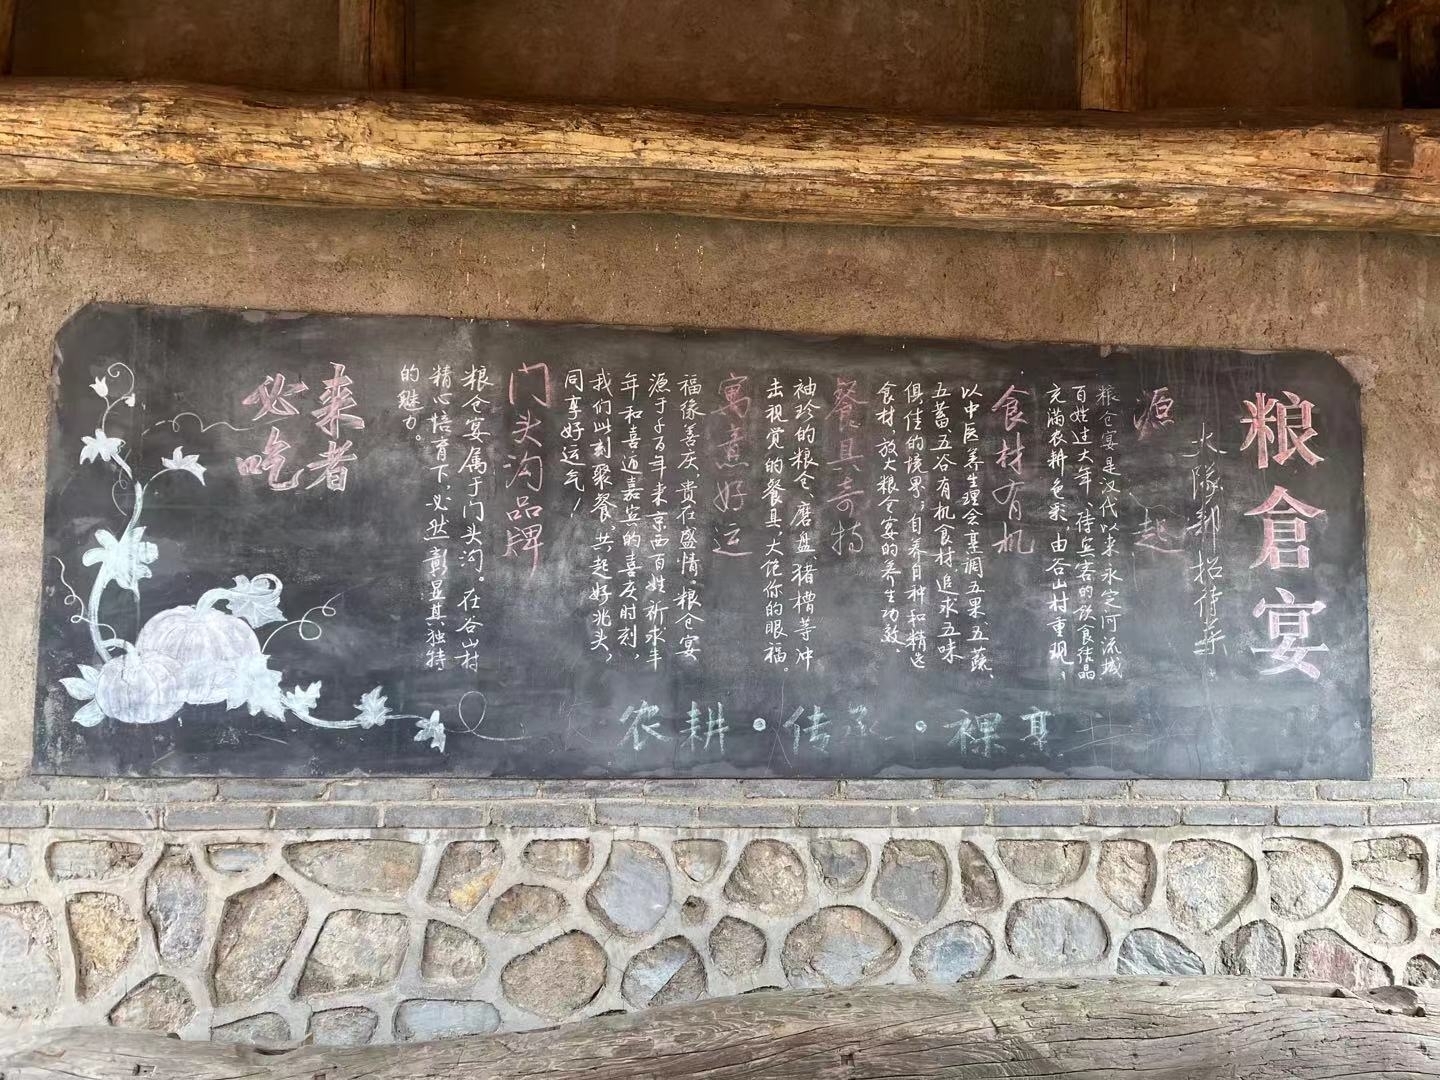 粮仓宴
火队部招待菜
源起
粮仓宴是汉代以来永定河流域
百姓过大年、待宾客的饮食结晶
充满农耕色彩，由谷山村重现。
食材有机
以中医养生理会烹调五果、五蔬、
五畜、五谷有机食材追求五味
俱佳的境界；自养自种和精选
食材，放大粮仓宴的养生功效。
餐具奇特
袖珍的粮仓、磨盘、猪槽等冲
击视觉的餐具，大饱你的眼福。
寓意好运
福缘善庆，贵在盛情。粮仓宴
源于千百年来京西百姓祈求丰
年和喜逅嘉宾的喜庆时刻，
我们此刻聚餐，共起好兆头，
同享好运气！
门头沟品牌
粮仓宴属于门头沟。在谷山村
精心培育下，必然彰显其独特
的魅力。
来者
必吃
农耕·传承·裸烹